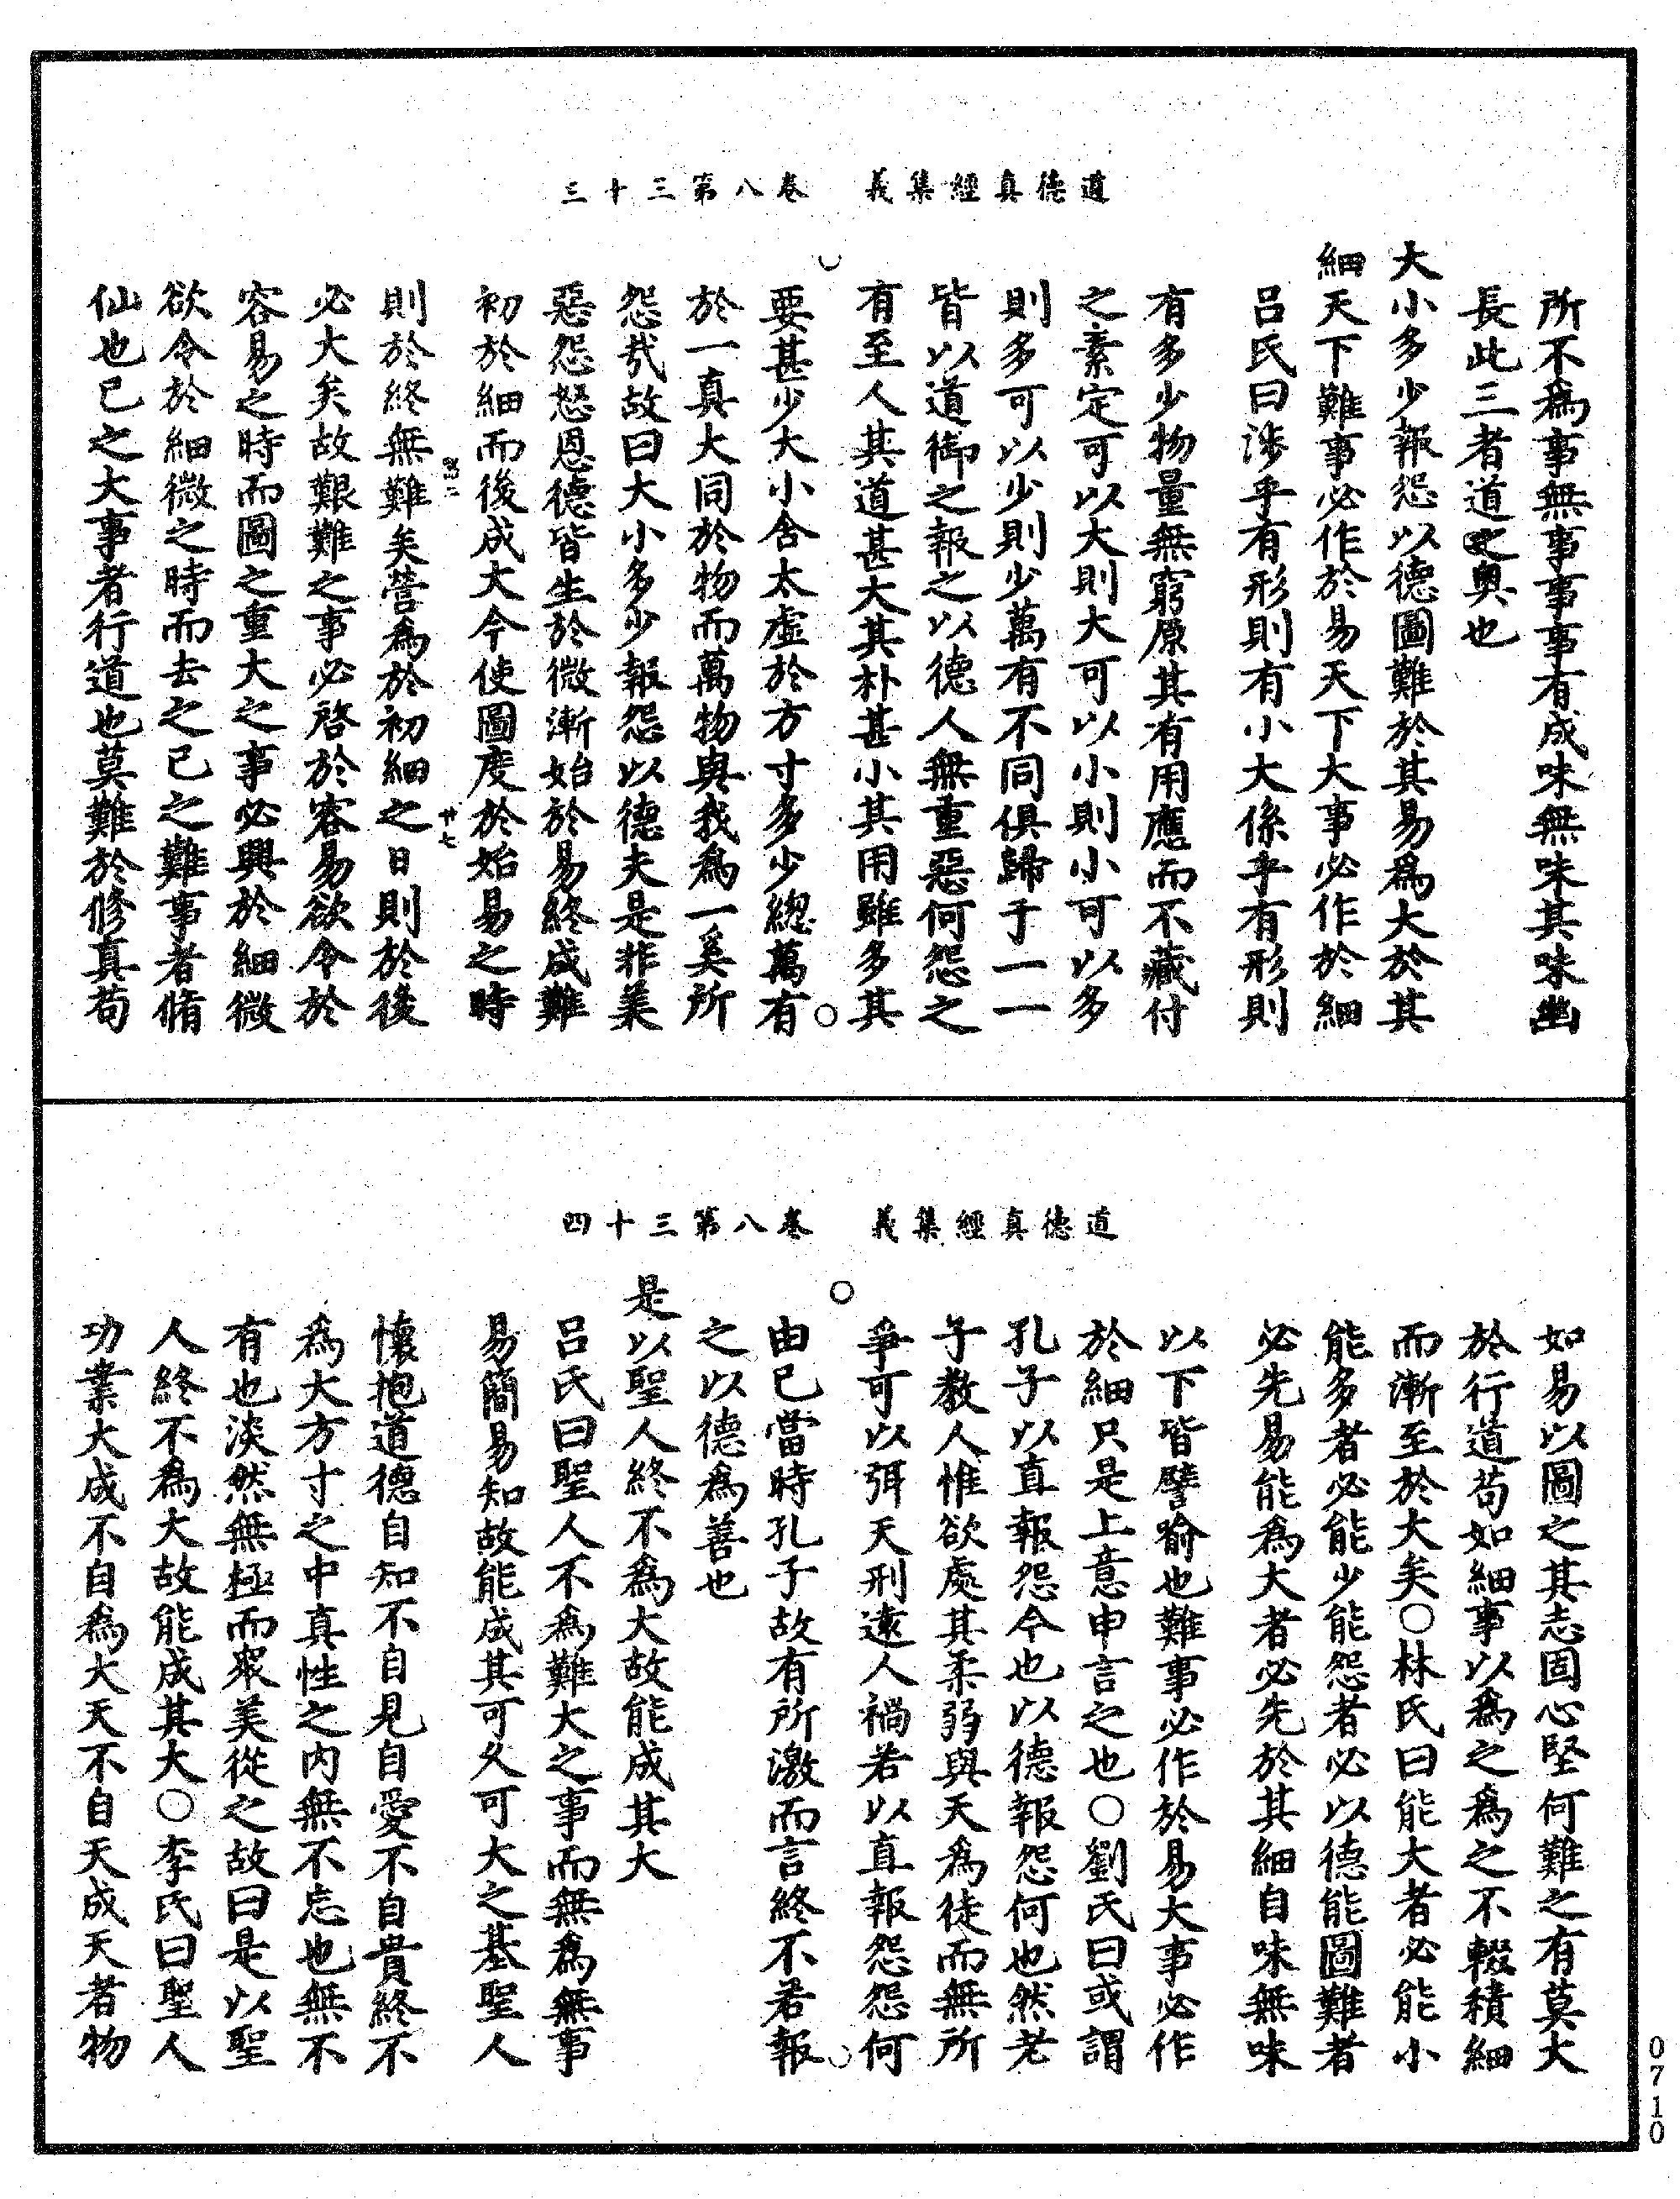 道德真經集義　卷八第三十三
所不為事無事事事有成味無味其味幽
長此三者道之奧也
大小多少報怨以德圖難於其易為大於其
細天下難事必作於易天下大事必作於細
呂氏曰涉乎有形則有小大係乎有形則
有多少物量無窮原其有用應而不藏付
之素定可以大則大可以小則小可以多
則多可以少則少萬有不同俱歸于一一
皆以道御之報之以德人無重惡何怨之
有至人其道甚大其朴甚小其用雖多其
要甚少大小含太虛於方寸多少總萬有
於一真大同於物而萬物與我為一奚所
怨哉故曰大小多少報怨以德夫是非美
惡怨怒恩德皆生於微漸始於易終成難
初於細而後成大今使圖度於始易之時
則於終無難矣營為於初細之日則於後
必大矣故艱難之事必啓於容易欲令於
容易之時而圖之重大之事必興於細微
欲令於細微之時而去之已之難事者脩
仙也已之大事者行道也莫難於修真苟
廿七
道德真經集義　卷八第三十四
如易以圖之其志固心堅何難之有莫大
於行道苟如細事以為之為之不輟積細
而漸至於大矣○林氏曰能大者必能小
能多者必能少能怨者必以德能圖難者
必先易能為大者必先於其細自味無味
以下皆譬喻也難事必作於易大事必作
於細只是上意申言之也○劉氏曰或謂
孔子以直報怨今也以德報怨何也然老
子教人惟欲處其柔弱與天為徒而無所
爭可以弭天刑遠人禍若以直報怨怨何
由已當時孔子故有所激而言終不若報
之以德為善也
是以聖人終不為大故能成其大
呂氏曰聖人不為難大之事而無為無事
易簡易知故能成其可久可大之基聖人
懷抱道德自知不自見自愛不自貴終不
為大方寸之中真性之內無不忘也無不
有也淡然無極而眾美從之故曰是以聖
人終不為大故能成其大○李氏曰聖人
功業大成不自為大天不自天成天者物
0710